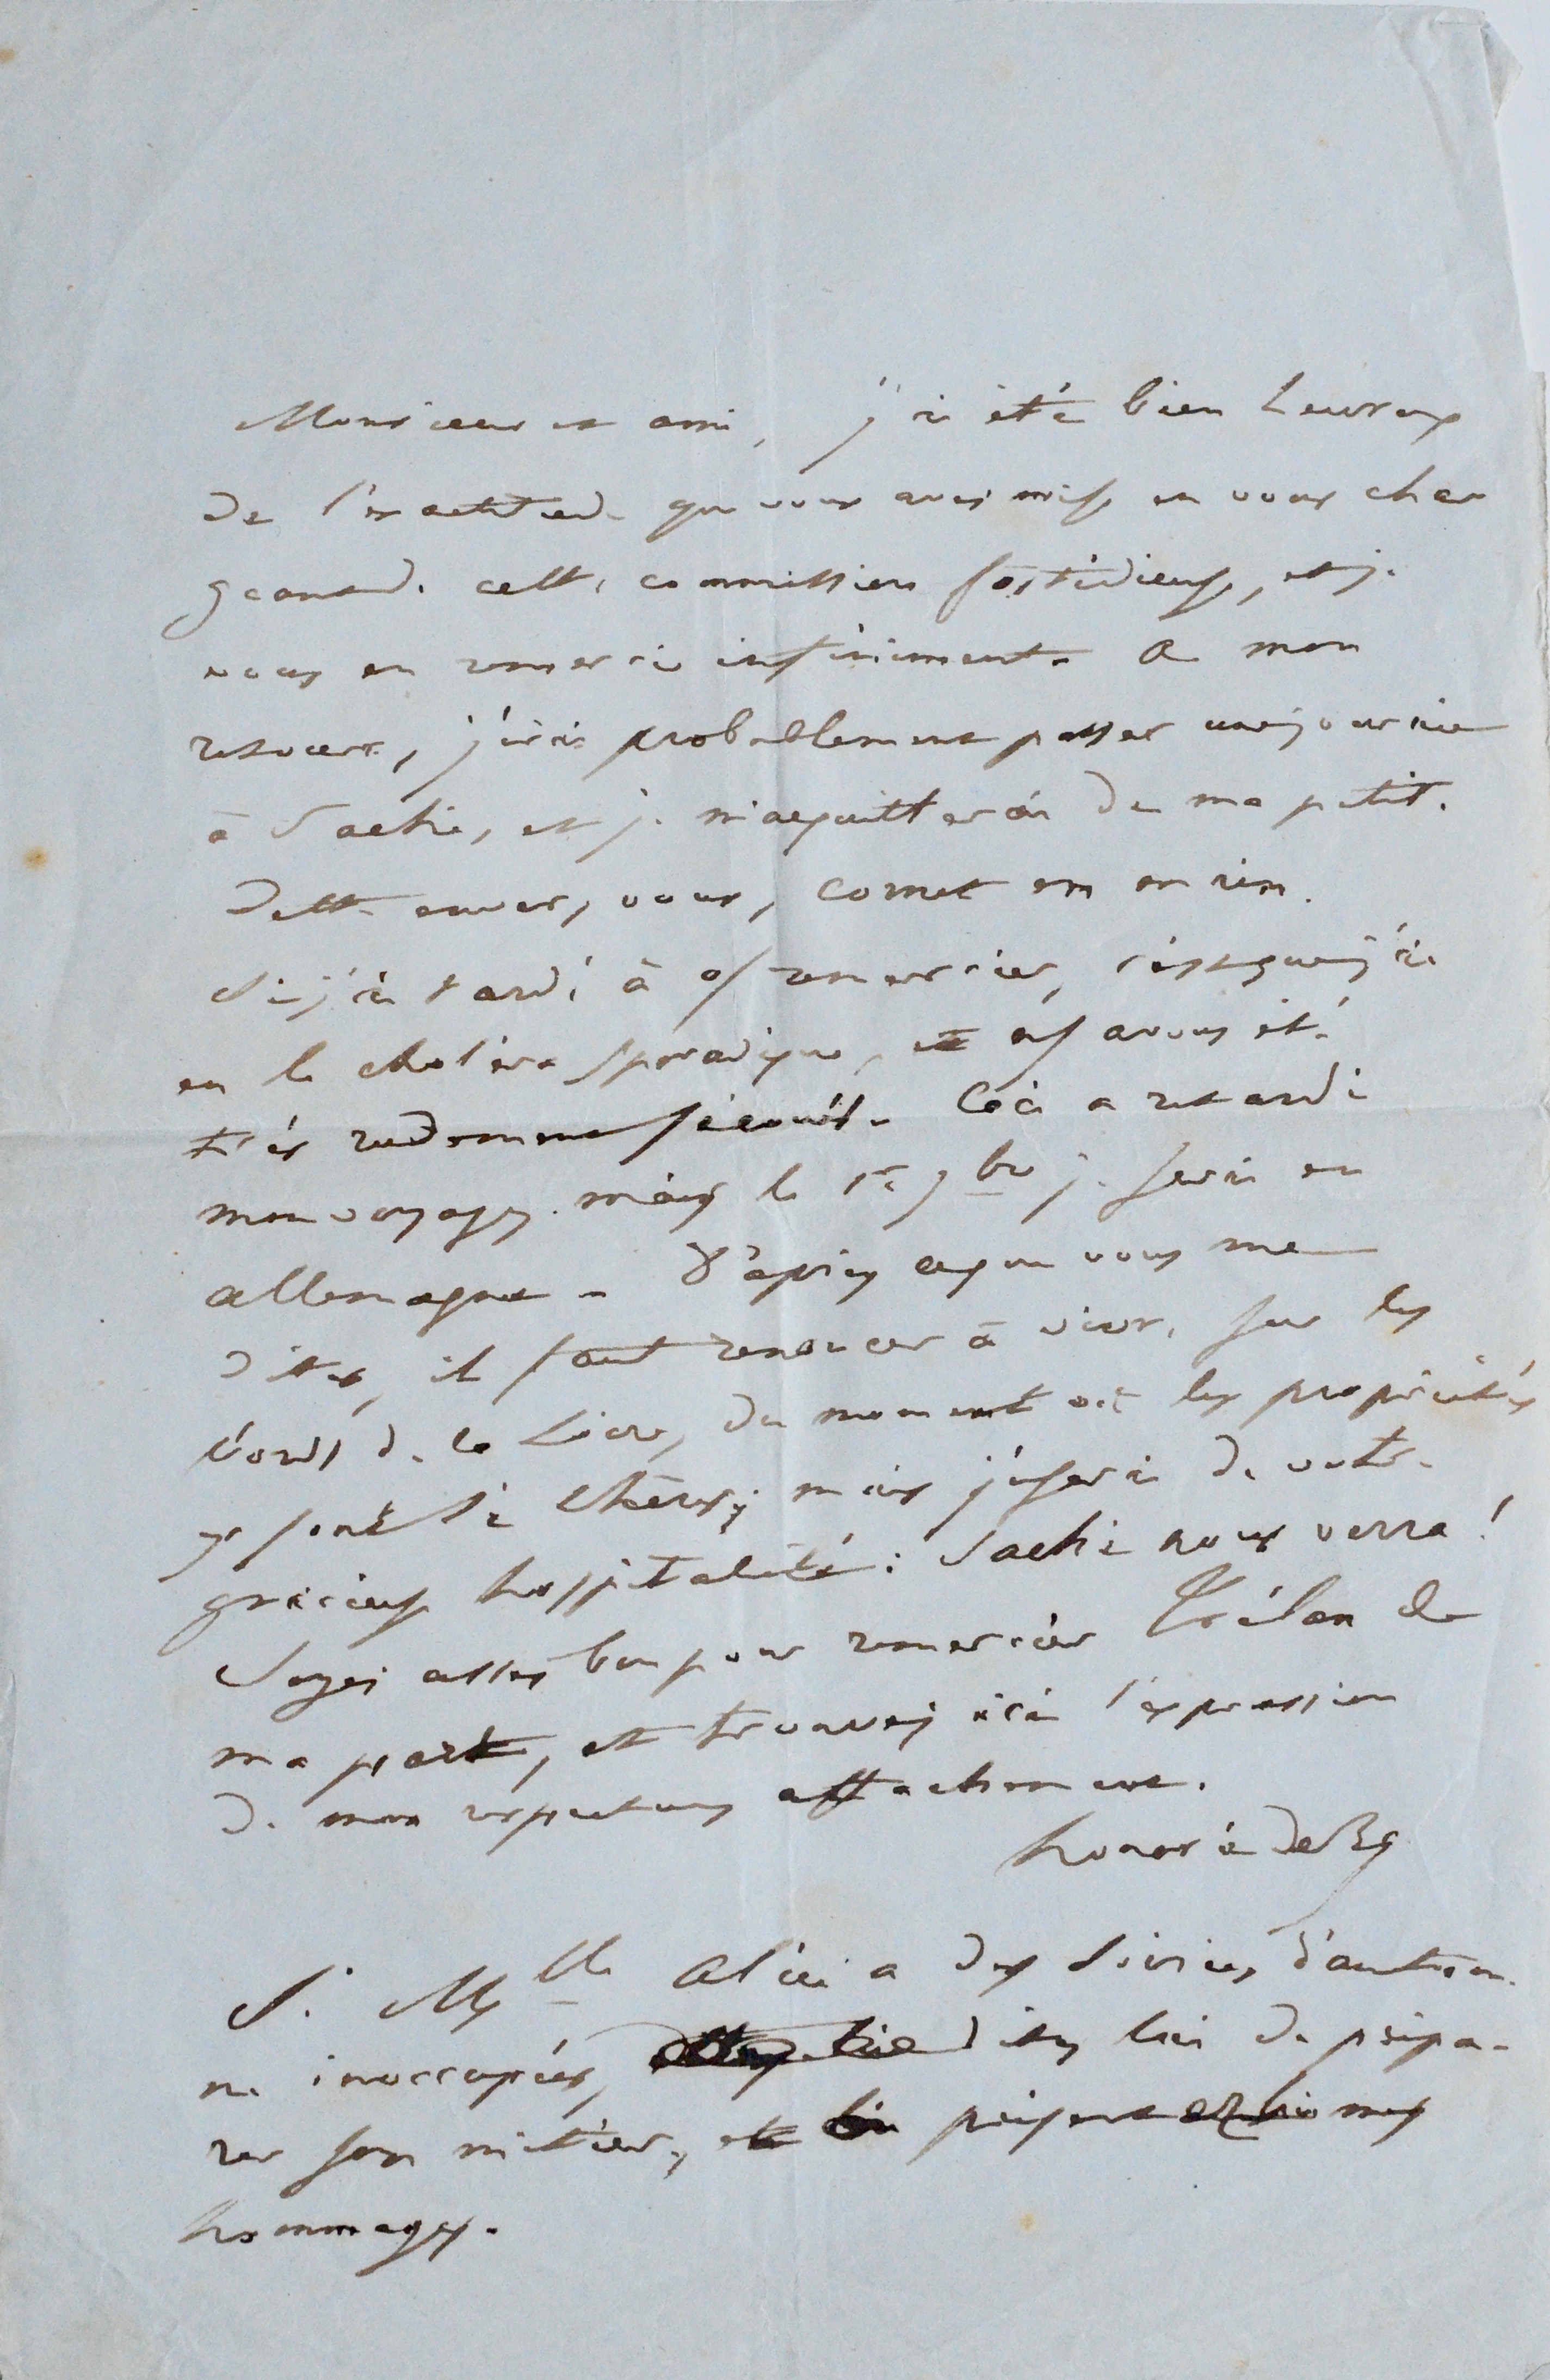 Monsieur et ami, j'ai été bien heureux
de l'exactitude que vous avez mise en vous char
geant de cette commission fastidieuse, et je
vous en remercie infiniment. A mon
retour, j'irai probablement passer une journée
à Saché, et je m'acquitterai de ma petite
dette envers vous, comet em en rien.
Si j'ai tardé à vs remercier, c'est que j'ai
eu le choléra sporadique, et en avons été
très rudement secoués. Ceci a retardé
mon voyage. mais le 1er 9bre je serai en
allemagne. D'après ce que vous me
dites, il faut renoncer à vivre sur les
bords de la Loire, du moment où les propriétés
y sont si chères; mais j'userai de votre
gracieuse hospitalité: Saché nous verra!
Soyez assez bon pour remercier Trélan de
ma part, et trouvez ici l'expression
de mon respectueux attachement.
honoré de Bc
Si Mlle Alice a des soirées d'autom-
ne inoccupées, dites lui de prépa-
rer son métier, et présentez lui mes
hommages.